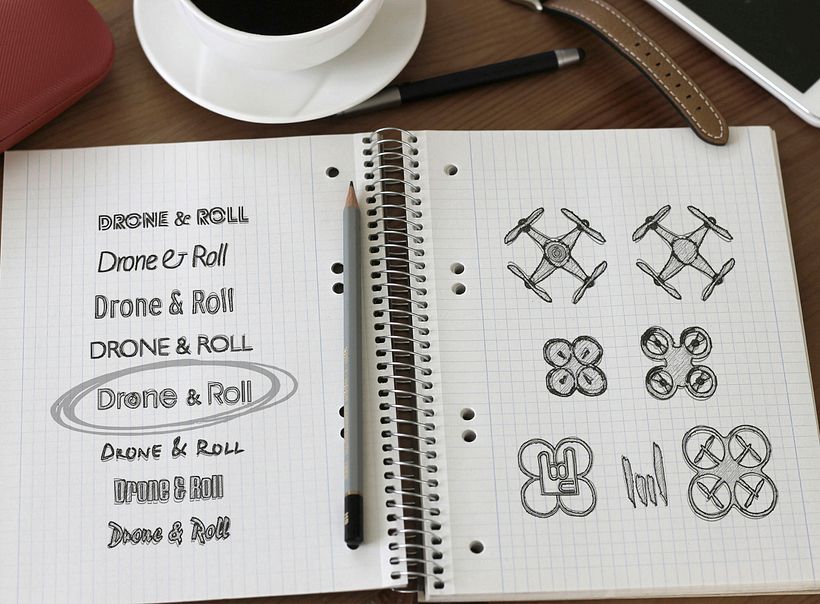 DRONE & ROLL
Drone & Roll
Drone & Roll
DRONE & ROLL
Drone & Roll
DRONE & ROLL
Drone & Roll
Drone & Roll